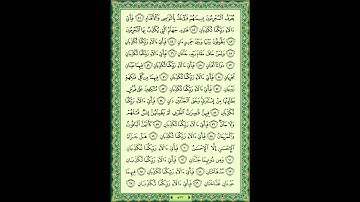 يُعْرَفُ ٱلْمُجْرِمُونَ بِسِيمَٰهُمْ فَيُؤْخَذُ بِٱلنَّوَٰصِى وَٱلْأَقْدَامِ ٤١ فَبِأَىِّ
ءَالَآءِ رَبِّكُمَا تُكَذِّبَانِ ٤٢ هَٰذِهِۦ جَهَنَّمُ ٱلَّتِى يُكَذِّبُ بِهَا ٱلْمُجْرِمُونَ
٤٣ يَطُوفُونَ بَيْنَهَا وَبَيْنَ حَمِيمٍ ءَانٍ ٤٤ فَبِأَىِّ ءَالَآءِ رَبِّكُمَا تُكَذِّبَانِ
٤٥ وَلِمَنْ خَافَ مَقَامَ رَبِّهِۦ جَنَّتَانِ ٤٦ فَبِأَىِّ ءَالَآءِ رَبِّكُمَا تُكَذِّبَانِ
٤٧ ذَوَاتَآ أَفْنَانٍ ٤٨ فَبِأَىِّ ءَالَآءِ رَبِّكُمَا تُكَذِّبَانِ ٤٩ فِيهِمَا عَيْنَانِ
تَجْرِيَانِ ٥٠ فَبِأَىِّ ءَالَآءِ رَبِّكُمَا تُكَذِّبَانِ ٥١ فِيهِمَا مِن كُلِّ فَٰكِهَةٍ
زَوْجَانِ ٥٢ فَبِأَىِّ ءَالَآءِ رَبِّكُمَا تُكَذِّبَانِ ٥٣ مُتَّكِـِٔينَ عَلَىٰ فُرُشٍۭ
بَطَآئِنُهَا مِنْ إِسْتَبْرَقٍ وَجَنَى ٱلْجَنَّتَيْنِ دَانٍ ٥٤ فَبِأَىِّ ءَالَآءِ رَبِّكُمَا
تُكَذِّبَانِ ٥٥ فِيهِنَّ قَٰصِرَٰتُ ٱلطَّرْفِ لَمْ يَطْمِثْهُنَّ إِنسٌ قَبْلَهُمْ
وَلَا جَآنٌّ ٥٦ فَبِأَىِّ ءَالَآءِ رَبِّكُمَا تُكَذِّبَانِ ٥٧ كَأَنَّهُنَّ ٱلْيَاقُوتُ
وَٱلْمَرْجَانُ ٥٨ فَبِأَىِّ ءَالَآءِ رَبِّكُمَا تُكَذِّبَانِ ٥٩ هَلْ جَزَآءُ
ٱلْإِحْسَٰنِ إِلَّا ٱلْإِحْسَٰنُ ٦٠ فَبِأَىِّ ءَالَآءِ رَبِّكُمَا تُكَذِّبَانِ
٦١ وَمِن دُونِهِمَا جَنَّتَانِ ٦٢ فَبِأَىِّ ءَالَآءِ رَبِّكُمَا تُكَذِّبَانِ
٦٣ مُدْهَآمَّتَانِ ٦٤ فَبِأَىِّ ءَالَآءِ رَبِّكُمَا تُكَذِّبَانِ ٦٥ فِيهِمَا
عَيْنَانِ نَضَّاخَتَانِ ٦٦ فَبِأَىِّ ءَالَآءِ رَبِّكُمَا تُكَذِّبَانِ